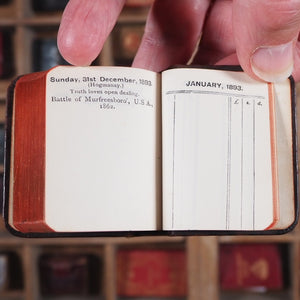 Sunday, 31st December, 1893.
(Hogmanay.)
Truth loves open dealing.
Battle of Murfreesboro', U.S.A.,
1862.
JANUARY, 1893.
£ s. d.